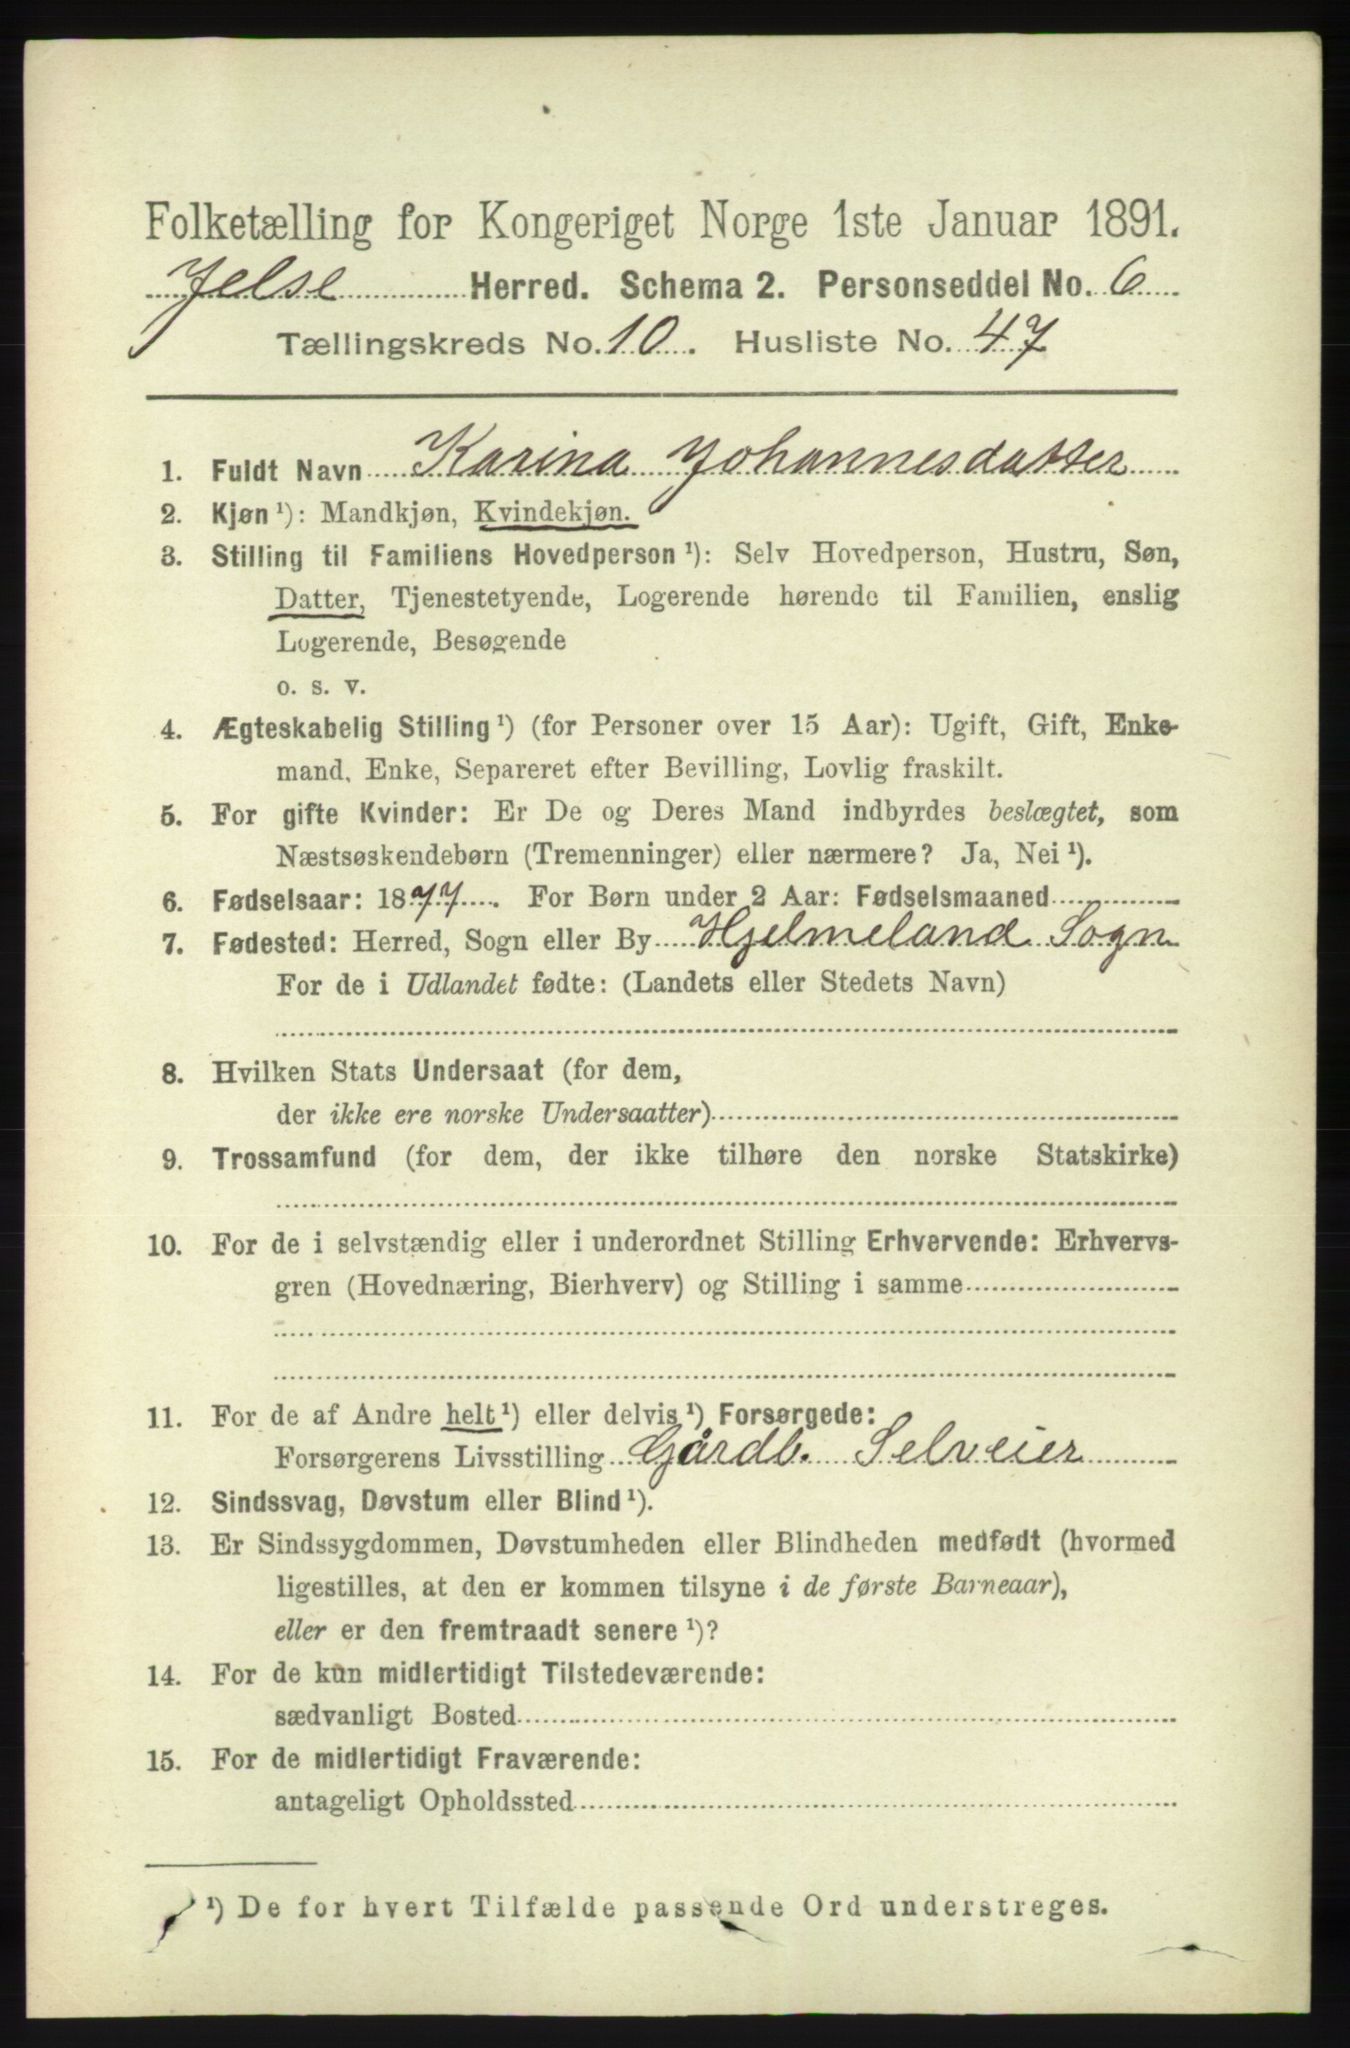 Folketælling for Kongeriget Norge 1ste Januar 1891.
Jelse Herred. Schema 2. Personseddel No. 6
Tællingskreds No. 10. Husliste No. 47
1. Fuldt Navn Karina Johannesdatter
2. Kjøn ¹): Mandkjøn, Kvindekjøn.
3. Stilling til Familiens Hovedperson ¹): Selv Hovedperson, Hustru, Søn,
Datter, Tjenestetyende, Logerende hørende til Familien, enslig
Logerende, Besøgende
o. s. v.
4. Ægteskabelig Stilling ¹) (for Personer over 15 Aar): Ugift, Gift, Enke-
mand, Enke, Separeret efter Bevilling, Lovlig fraskilt.
5. For gifte Kvinder: Er De og Deres Mand indbyrdes beslægtet, som
Næstsøskendebørn (Tremenninger) eller nærmere? Ja, Nei ¹).
6. Fødselsaar: 1877. For Børn under 2 Aar: Fødselsmaaned
7. Fødested: Herred, Sogn eller By Hjelmeland Sogn
For de i Udlandet fødte: (Landets eller Stedets Navn)
8. Hvilken Stats Undersaat (for dem,
der ikke ere norske Undersaatter)
9. Trossamfund (for dem, der ikke tilhøre den norske Statskirke)
10. For de i selvstændig eller i underordnet Stilling Erhvervende: Erhvervs-
gren (Hovednæring, Bierhverv) og Stilling i samme
11. For de af Andre helt ¹) eller delvis ¹) Forsørgede:
Forsørgerens Livsstilling Gårdb. Selveier
12. Sindssvag, Døvstum eller Blind ¹).
13. Er Sindssygdommen, Døvstumheden eller Blindheden medfødt (hvormed
ligestilles, at den er kommen tilsyne i de første Barneaar),
eller er den fremtraadt senere ¹)?
14. For de kun midlertidigt Tilstedeværende:
sædvanligt Bosted
15. For de midlertidigt Fraværende:
antageligt Opholdssted
¹) De for hvert Tilfælde passende Ord understreges.